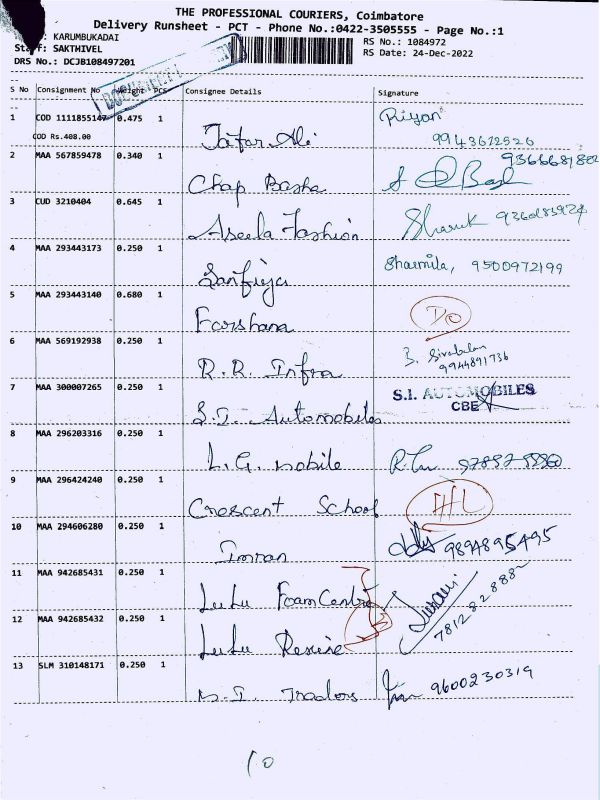 THE PROFESSIONAL COURIERS, Coimbatore
Delivery Runsheet - PCT - Phone No.:0422-3505555 - Page No.:1
: KARUMBUKADAI
RS No.: 1084972
Staff: SAKTHIVEL
RS Date: 24-Dec-2022
DRS No.: DCJB108497201
S No Consignment No Weight PCS Consignee Details Signature
1 COD 1111855147 0.475 1 Jafar Ali Riyan
COD Rs.408.00 9943612526
2 MAA 567859478 0.340 1 Chap Basha
3 CUD 3210404 0.645 1 Aseela Fashion Sharuk
4 MAA 293443173 0.250 1 Sharmila, 9500972199
5 MAA 293443140 0.680 1 Farshana DO
6 MAA 569192938 0.250 1 R.R. Infra B. Sivabalan
9944891736
7 MAA 300007265 0.250 1 S.I. Automobiles S.I. AUTOMOBILES
CBE
8 MAA 296203316 0.250 1 L.G. mobile
9 MAA 296424240 0.250 1 Crescent School
10 MAA 294606280 0.250 1 Imran 9894895495
11 MAA 942685431 0.250 1 LuLu Foam Centre
7812828882
12 MAA 942685432 0.250 1 LuLu
13 SLM 310148171 0.250 1 M.I. Traders 9600230319
10